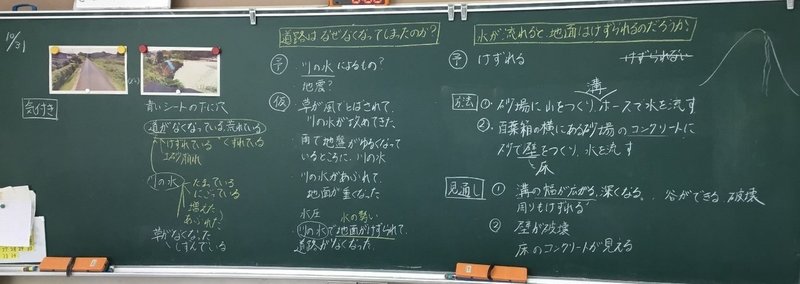 10/31
気付き
青いシートの下に穴
道がなくなっている 荒れている
けずれている くずれている
土砂崩れ
川の水
たまっている
にごっている
増えた
あふれた
草がなくなった
しずんでいる
道路はなぜなくなってしまったのか?
予 川の水によるもの?
地震?
仮 草が風でとばされて、
川の水が攻めてきた
雨で地盤がゆるくなって
いるところに、川の水
川の水があふれて、
地面が重くなった
水圧 水の勢い
川の水で地面がけずられて、
道路がなくなった。
水が流れると、地面はけずられるのだろうか
予 けずれる けずられない
溝
方法 ① 砂場に山をつくり、ホースで水を流す
② 百葉箱の横にある砂場のコンクリートに
砂で壁をつくり、水を流す
床
見通し ① 溝の幅が広がる、深くなる。谷ができる 破壊
周りもけずれる
② 壁が破壊
床のコンクリートが見える